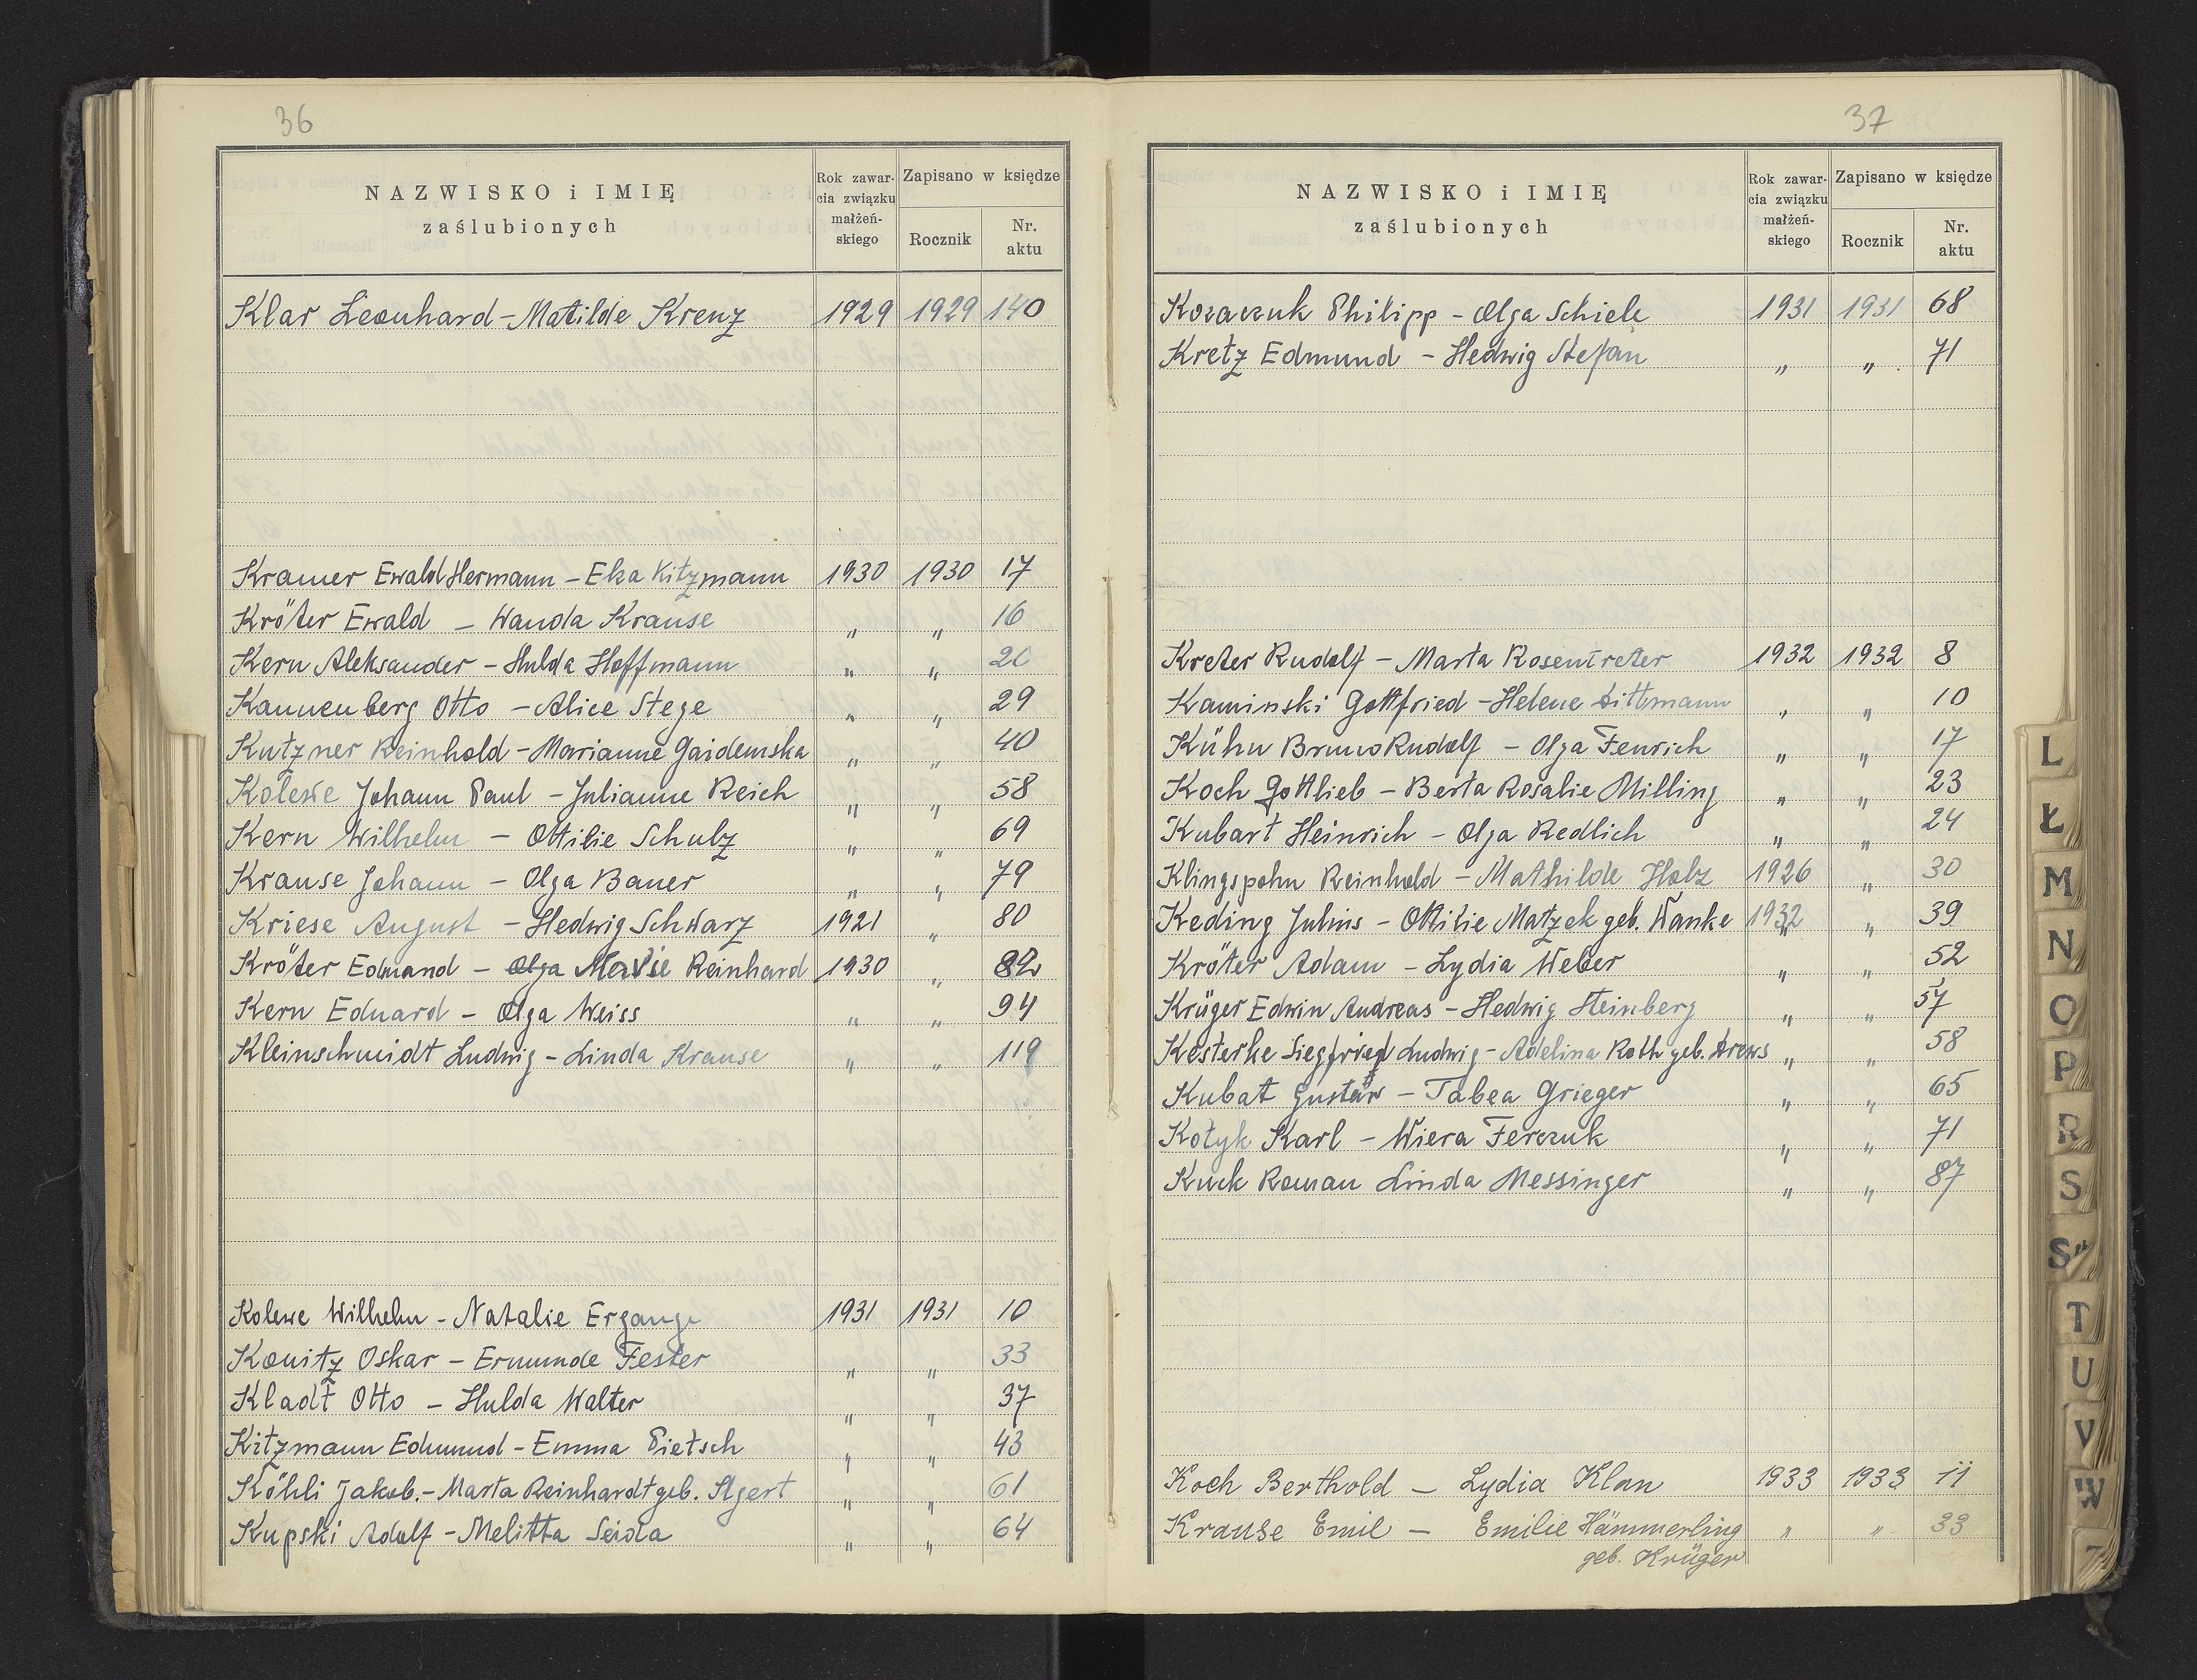 36
NAZWISKO i IMIĘ
zaślubionych
Rok zawar-
cia związku
małżeń-
skiego
Zapisano w księdze
Rocznik
Nr.
aktu
Klar Leonhard - Matilde Krenz 1929 1929 140
Kramer Ewald Hermann - Elsa Kitzmann 1930 1930 17
Kröter Ewald - Wanda Krause " " 16
Kern Aleksander - Hulda Hoffmann " "
Kannenberg Otto - Alice Stege " " 29
Kutzner Reinhold - Marianne Gaidemska " " 40
Kolewe Johann Paul - Julianne Reich " " 58
Kern Wilhelm - Ottilie Schulz " " 69
Krause Johann - Olga Bauer " " 79
Kriese August - Hedwig Schwarz 1921 " 80
Kröter Edmund - Olga Marie Reinhard 1930 " 82
Kern Eduard - Olga Weiss " " 94
Kleinschmidt Ludwig - Linda Krause " " 119
Kolewe Wilhelm - Natalie Ergange 1931 1931 10
Konitz Oskar - Ermunde Fester " " 33
Kladt Otto - Hulda Walter " " 37
Kitzmann Edmund - Emma Pietsch " " 43
Köhli Jakob. - Marta Reinhardt geb. Agert " " 61
Kupski Adolf - Melitta Seida " " 64
37
NAZWISKO i IMIĘ
zaślubionych
Rok zawar-
cia związku
małżeń-
skiego
Zapisano w księdze
Rocznik
Nr.
aktu
Kozaczuk Philipp - Olga Schiele 1931 1931 68
Kretz Edmund - Hedwig Stefan " " 71
Kreter Rudolf - Marta Rosentreter 1932 1932 8
Kaminski Gottfried - Helene Dittmann " " 10
Kühn Bruno Rudolf - Olga Fenrich " " 17
Koch Gottlieb - Berta Rosalie Milling " " 23
Kubart Heinrich - Olga Redlich " " 24
Klingspohn Reinhold - Mathilde Holz 1926 " 30
Keding Julius - Ottilie Matzek geb. Wanke 1932 " 39
Kröter Adam - Lydia Weber " " 52
Krüger Edwin Andreas - Hedwig Steinberg " " 57
Kesterke Siegfried Ludwig - Adelina Roth geb. Drews " " 58
Kubat Gustav - Tabea Grieger " " 65
Kotyk Karl - Wiera Ferczuk " " 71
Kuck Roman Linda Messinger " " 87
Koch Berthold - Lydia Klan 1933 1933 11
Krause Emil - Emilie Hämmerling " " 33
geb. Krüger
L
Ł
M
N
O
P
R
S
Ś
T
U
V
W